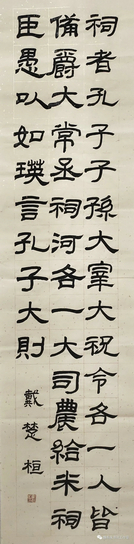 祠者孔子子孫大宰大祝令各一人皆
備爵大常丞祠河各一大司農給米祠
臣愚以如瑛言孔子大則
戴楚桓